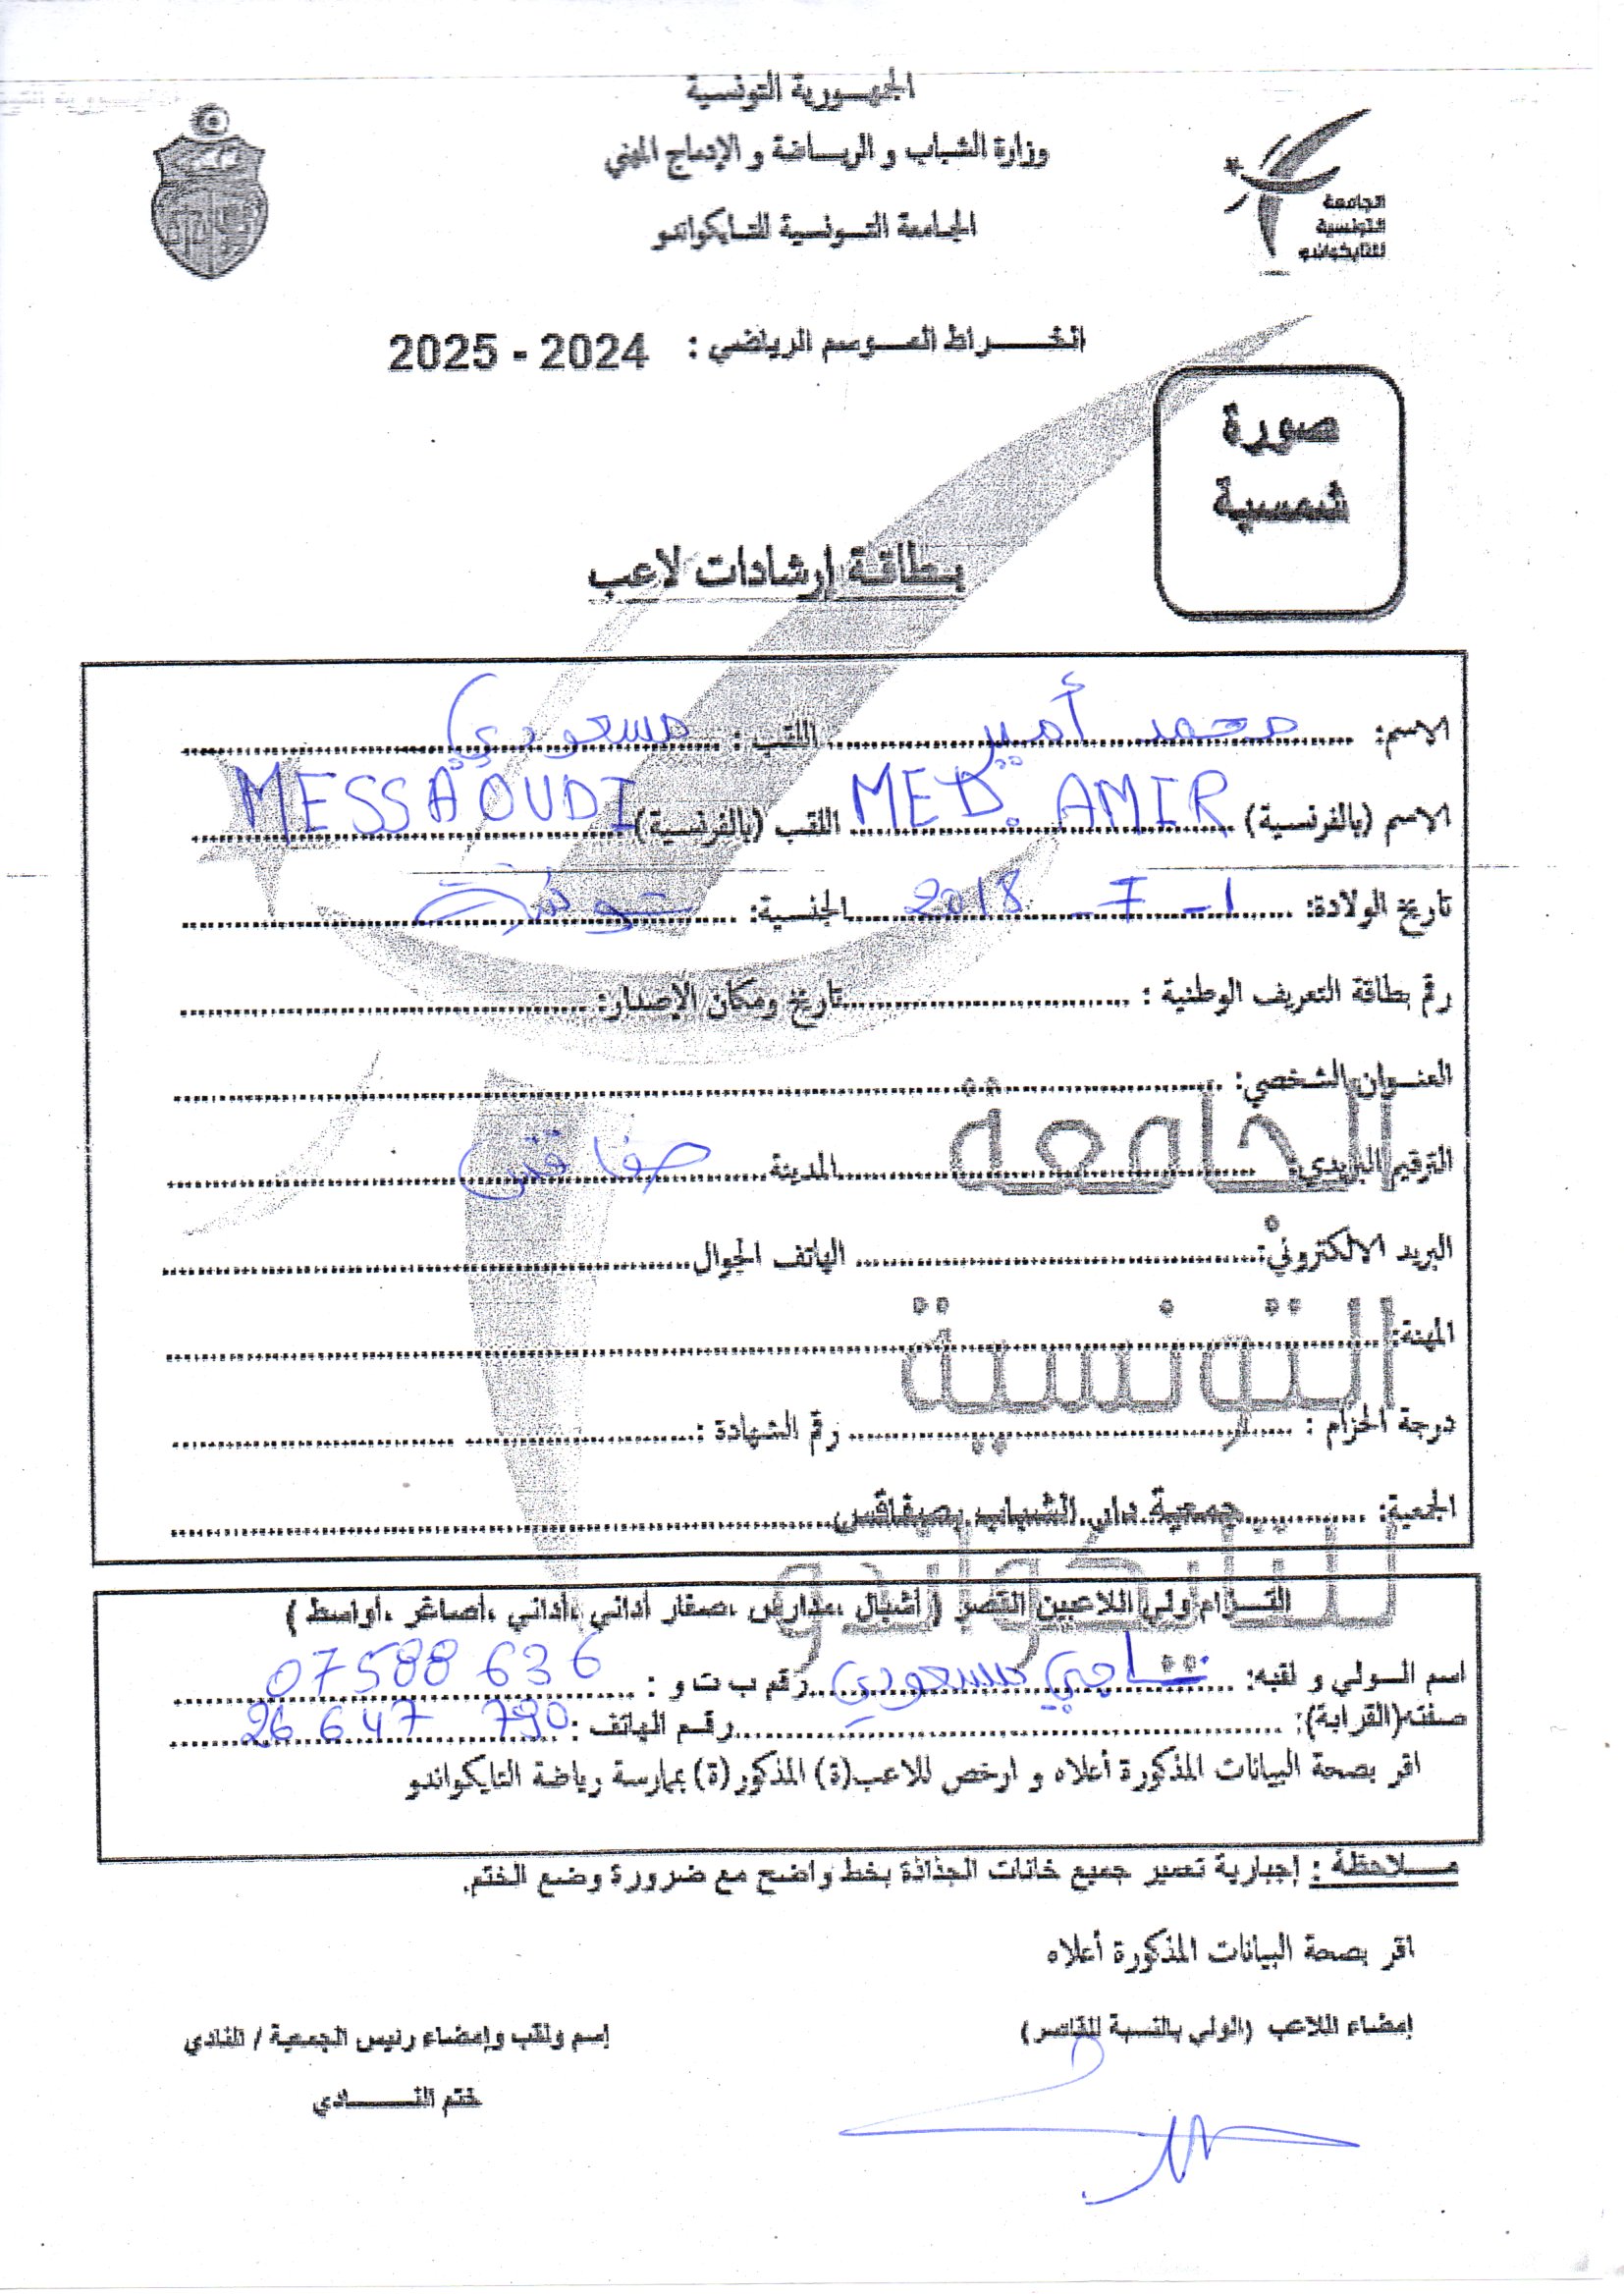 الجمهورية التونسية
وزارة الشباب و الرياضة و الإدماج المهني
الجامعة التونسية للتايكواندو
الجامعة
التونسية
للتايكواندو
انخراط الموسم الرياضي : 2024 - 2025
صورة
شمسية
بطاقة إرشادات لاعب
الاسم: محمد أمير اللقب : مسعودي
الاسم (بالفرنسية) MED. AMIR اللقب (بالفرنسية) MESSAOUDI
تاريخ الولادة: 1 - 7 - 2018 الجنسية: تونسية
رقم بطاقة التعريف الوطنية : تاريخ ومكان الإصدار:
العنوان الشخصي:
الترقيم البريدي: المدينة صفاقس
البريد الالكتروني: الهاتف الجوال
المهنة:
درجة الحزام : رقم الشهادة :
الجمعية: جمعية دار الشباب بصفاقس
الجامعة
التونسية
للتايكواندو
التزام ولي اللاعبين القصر ( أشبال ،مدارس ،صغار أداني ،أداني ،أصاغر ،أواسط )
اسم الولي و لقبه: ناجي مسعودي رقم ب ت و : 07588 636
صفته(القرابة): رقم الهاتف : 26 647 790
اقر بصحة البيانات المذكورة أعلاه و ارخص للاعب(ة) المذكور(ة) بممارسة رياضة التايكواندو
ملاحظة : إجبارية تعمير جميع خانات الجذاذة بخط واضح مع ضرورة وضع الختم.
اقر بصحة البيانات المذكورة أعلاه
إمضاء اللاعب (الولي بالنسبة للقاصر)
إسم ولقب وإمضاء رئيس الجمعية / النادي
ختم النادي